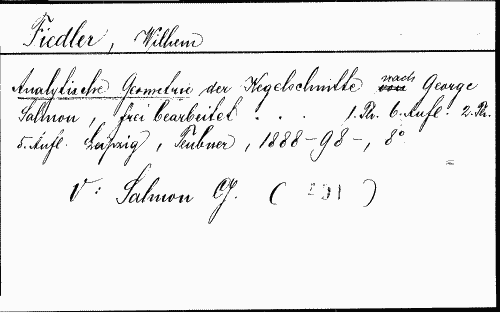 Fiedler, Wilhem
Analytische Geometrie der Kegelschnitte nach George
Salmon, frei bearbeitet . . . 1. Th. 6. Aufl. 2. Th.
5. Aufl. Leipzig, Teubner, 1888-98-, 8°
V: Salmon G. ( 291 )